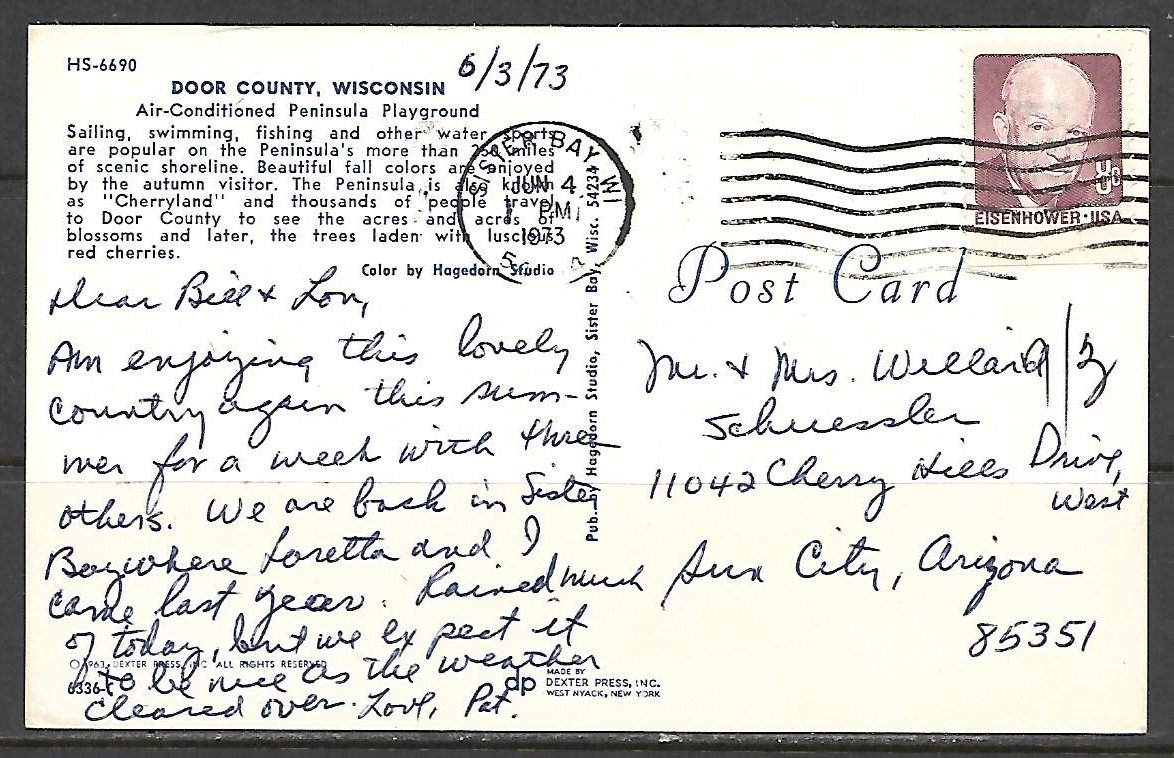 HS-6690
6/3/73
DOOR COUNTY, WISCONSIN
Air-Conditioned Peninsula Playground
Sailing, swimming, fishing and other water sports
are popular on the Peninsula's more than 250 miles
of scenic shoreline. Beautiful fall colors are enjoyed
by the autumn visitor. The Peninsula is also known
as "Cherryland" and thousands of people travel
to Door County to see the acres and acres of
blossoms and later, the trees laden with luscious
red cherries.
Color by Hagedorn Studio
SISTER BAY WI
JUN 4
PM
1973
8c
EISENHOWER·USA
Dear Bill & Lou,
Am enjoying this lovely
country again this sum-
mer for a week with three
others. We are back in Sister
Bay where Loretta and I
came last year. Rained much
of today, but we expect it
to be nice as the weather
cleared over. Love, Pat.
© 1963, DEXTER PRESS, INC ALL RIGHTS RESERVED
Pub. by Hagedorn Studio, Sister Bay, Wisc. 54234
MADE BY
dp DEXTER PRESS, INC.
WEST NYACK, NEW YORK
Post Card
Mr. & Mrs. Willard
Schuessler
11042 Cherry Hills Drive,
West
Sun City, Arizona
85351